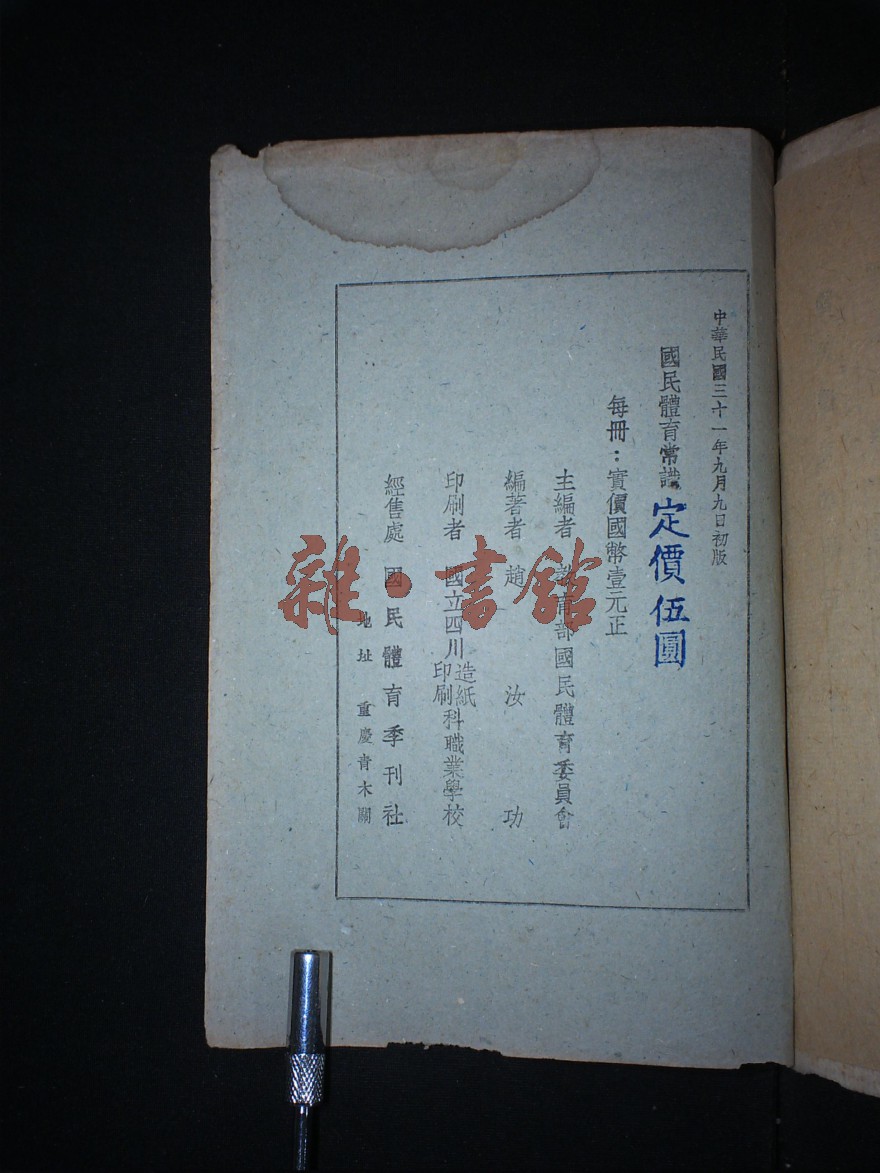 中華民國三十一年九月九日初版
國民體育常識
定價伍圓
每冊：實價國幣壹元正
主編者 教育部國民體育委員會
編著者 趙汝功
印刷者 國立四川造紙印刷科職業學校
經售處 國民體育季刊社
地址 重慶青木關
雜·書館